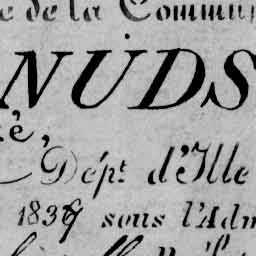 e de la Commu
NUDS
è,
Dépt. d'Ille
1839 sous l'Adm